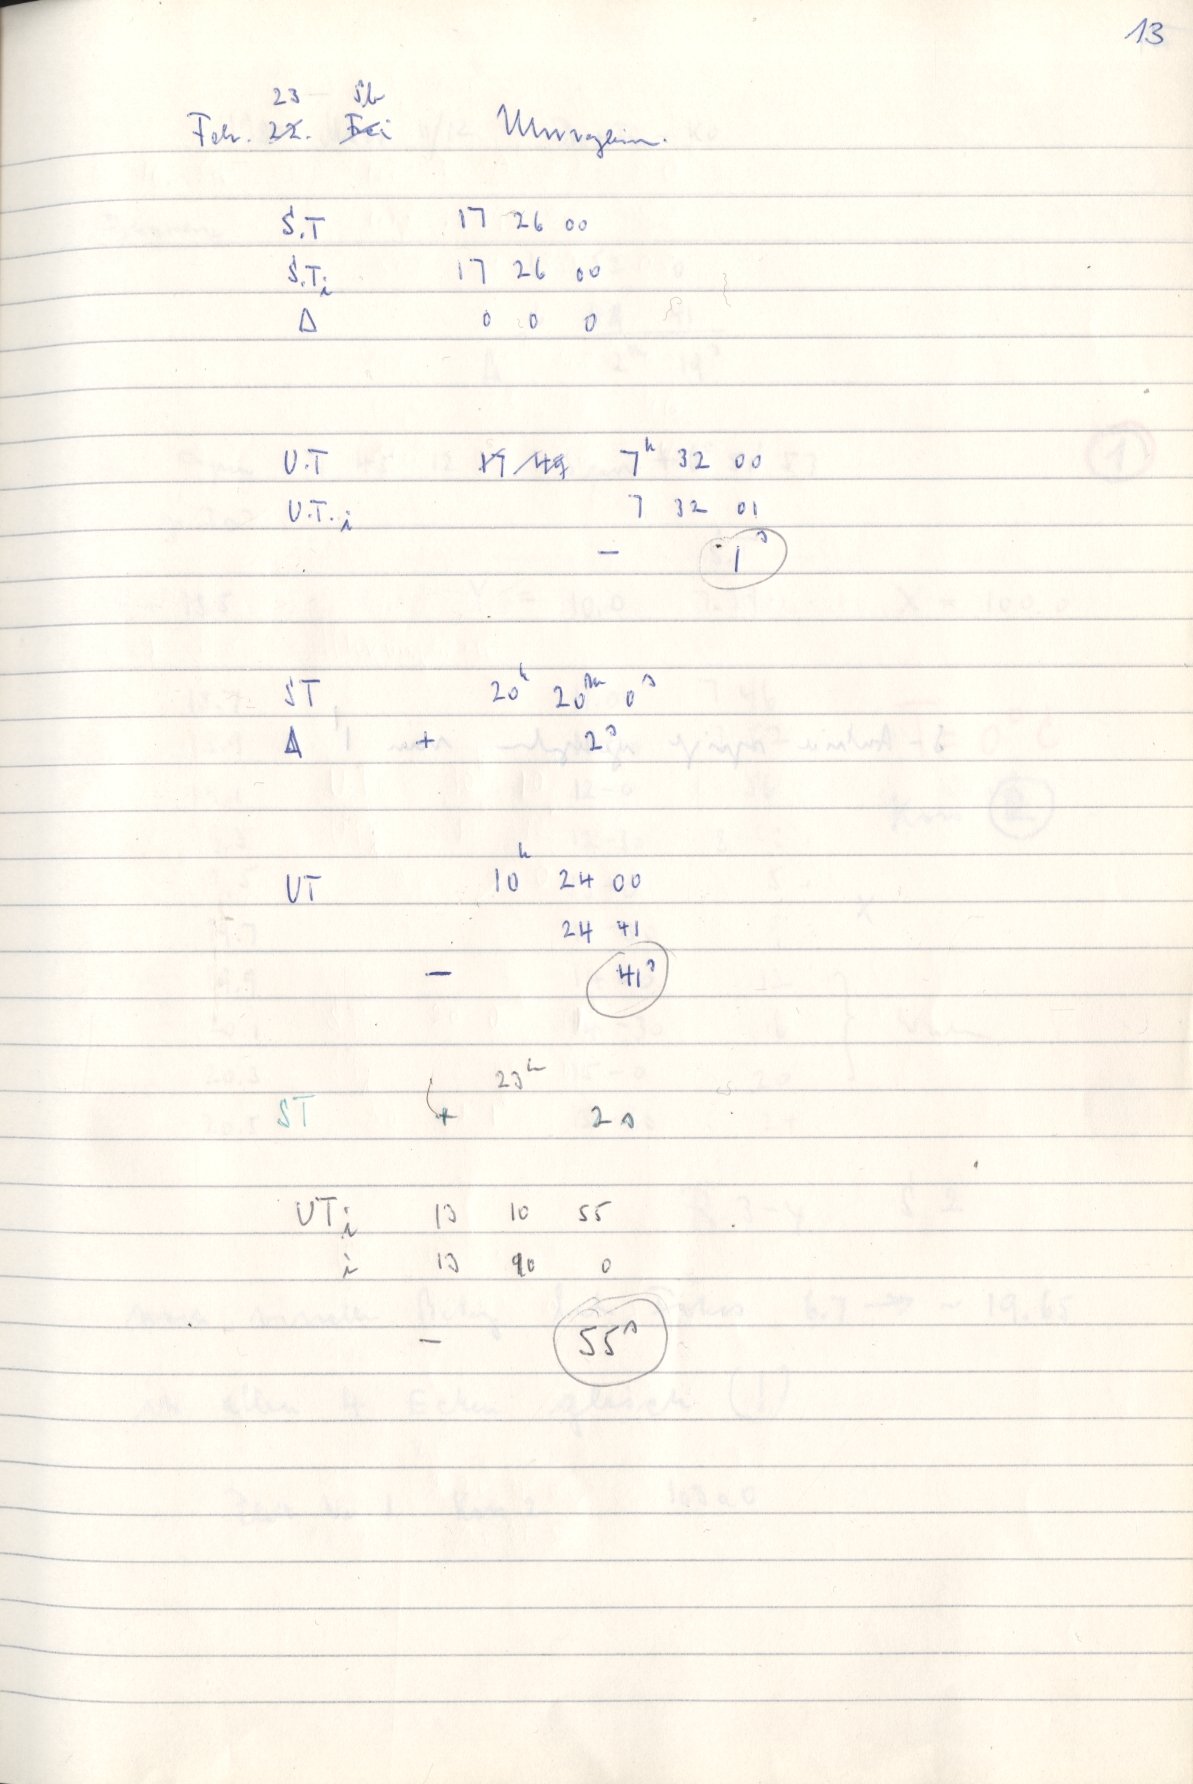 13
23 Sb
Feb. 22. Frei
S.T 17 26 00
S.Ti 17 26 00
Δ 0 0 0
U.T 19 49 7h 32 00
U.T.i 7 32 01
- 1s
ST 20h 20m 0s
Δ + 2s
UT 10h 24 00
24 41
- 41s
23h
ST + 2s
UTi 13 10 55
i 13 10 0
- 55s